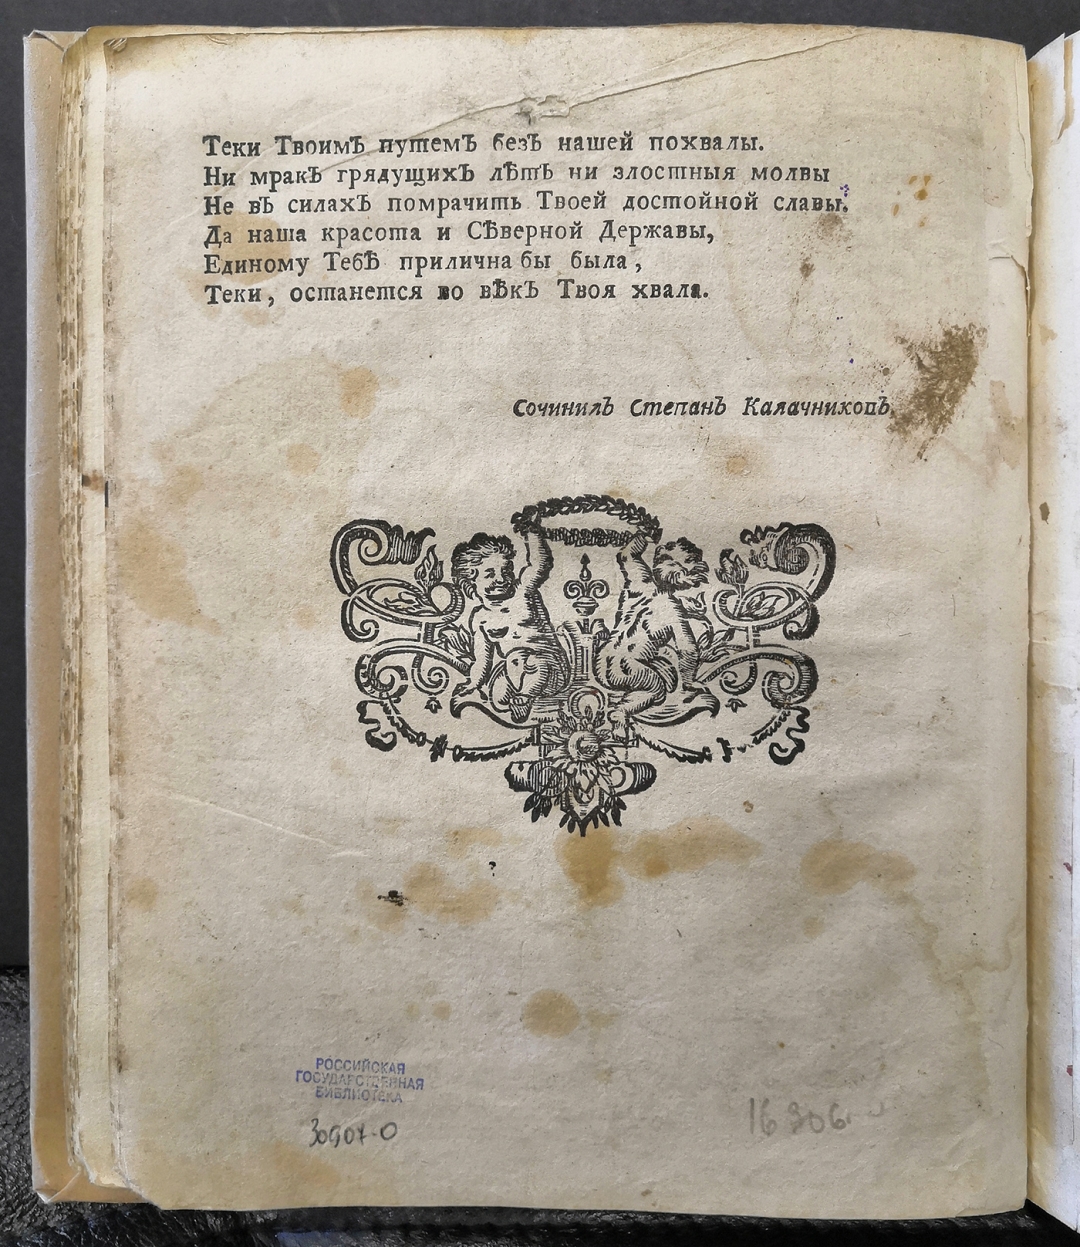 Теки Твоимъ путемъ безъ нашей похвалы.
Ни мракъ грядущихъ лѣтъ ни злостныя молвы
Не въ силахъ помрачить Твоей достойной славы.
Да наша красота и Сѣверной Державы,
Единому Тебѣ прилична бы была,
Теки, останется во вѣкъ Твоя хвала.
Сочинилъ Степанъ Калачниковъ.
РОССИЙСКАЯ
ГОСУДАРСТВЕННАЯ
БИБЛИОТЕКА
30907-0